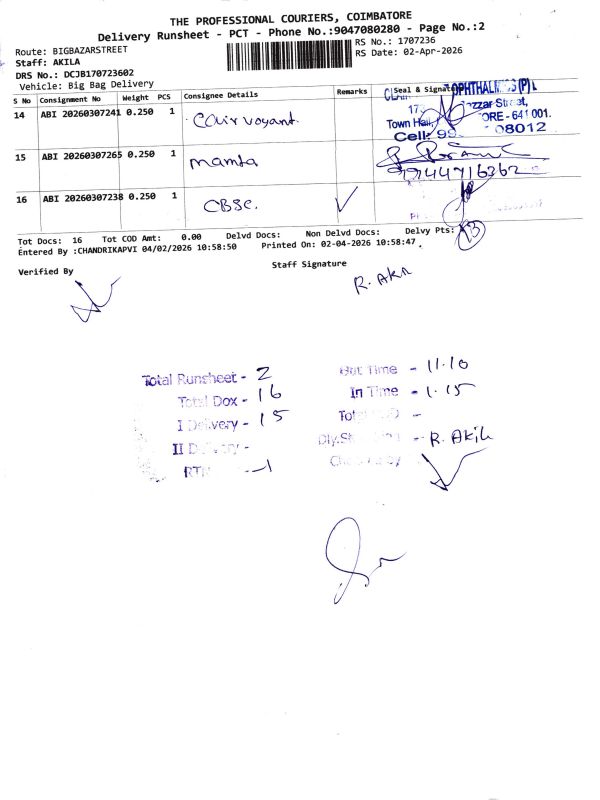 THE PROFESSIONAL COURIERS, COIMBATORE
Delivery Runsheet - PCT - Phone No.:9047080280 - Page No.:2
Route: BIGBAZARSTREET
RS No.: 1707236
Staff: AKILA
RS Date: 02-Apr-2026
DRS No.: DCJB170723602
Vehicle: Big Bag Delivery
S No Consignment No Weight PCS Consignee Details Remarks Seal & Signat
14 ABI 20260307241 0.250 1 Clair voyant.
OPHTHALMICS (P) L
Town Hall, ORE - 641 001.
Cell: 08012
15 ABI 20260307265 0.250 1 Mamta
16 ABI 20260307238 0.250 1 CBSC.
Tot Docs: 16 Tot COD Amt: 0.00 Delvd Docs: Non Delvd Docs: Delvy Pts: 13
Entered By :CHANDRIKAPVI 04/02/2026 10:58:50 Printed On: 02-04-2026 10:58:47
Verified By
Staff Signature
R. AKil
Total Runsheet - 2
Out Time - 11.10
Total Dox - 16
In Time - 1.15
I Delivery - 15
II Delivery -
R. Akil
RTN - 1